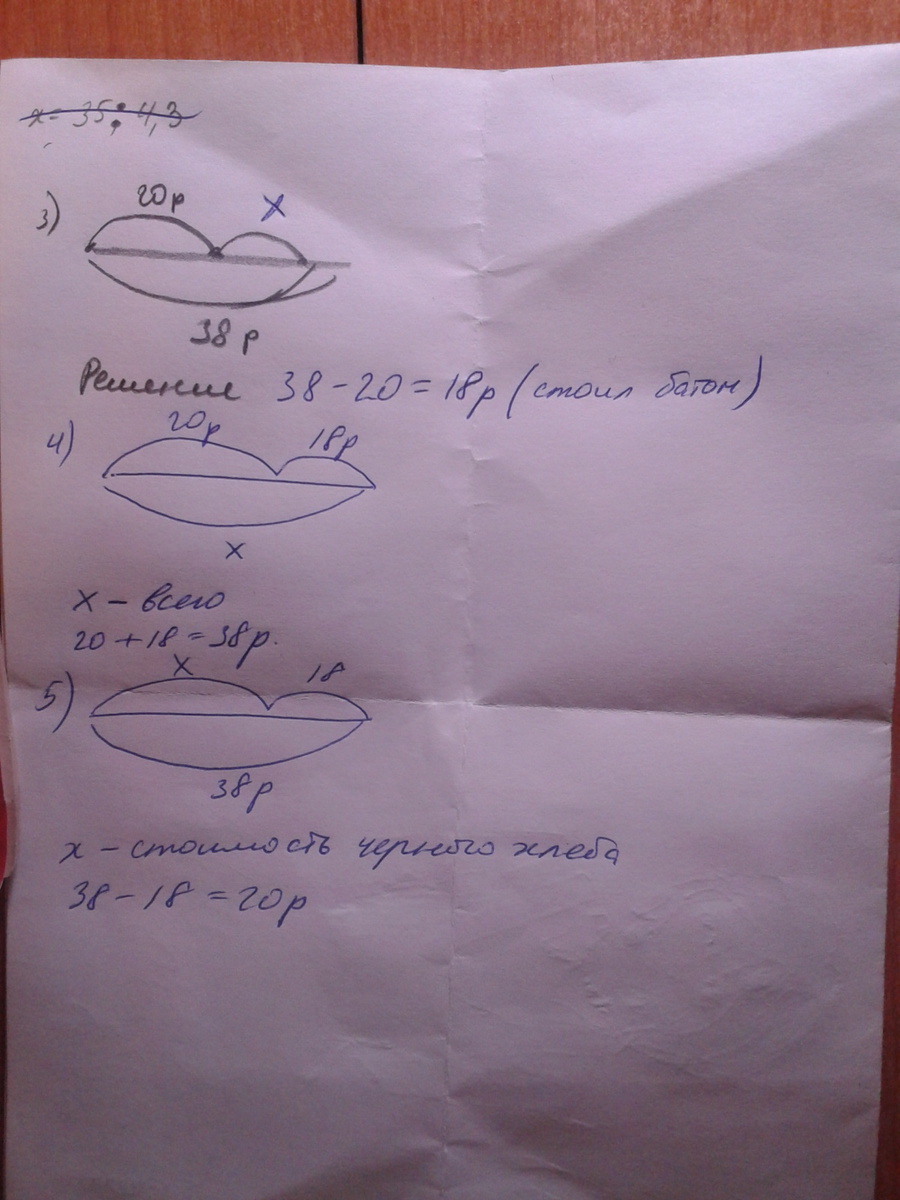 x = 35 : 4,3
3)
20р
x
38 р
Решение 38 - 20 = 18р (стоил батон)
4)
20р
18р
x
x - всего
20 + 18 = 38р.
5)
x
18
38р
x - стоимость черного хлеба
38 - 18 = 20р